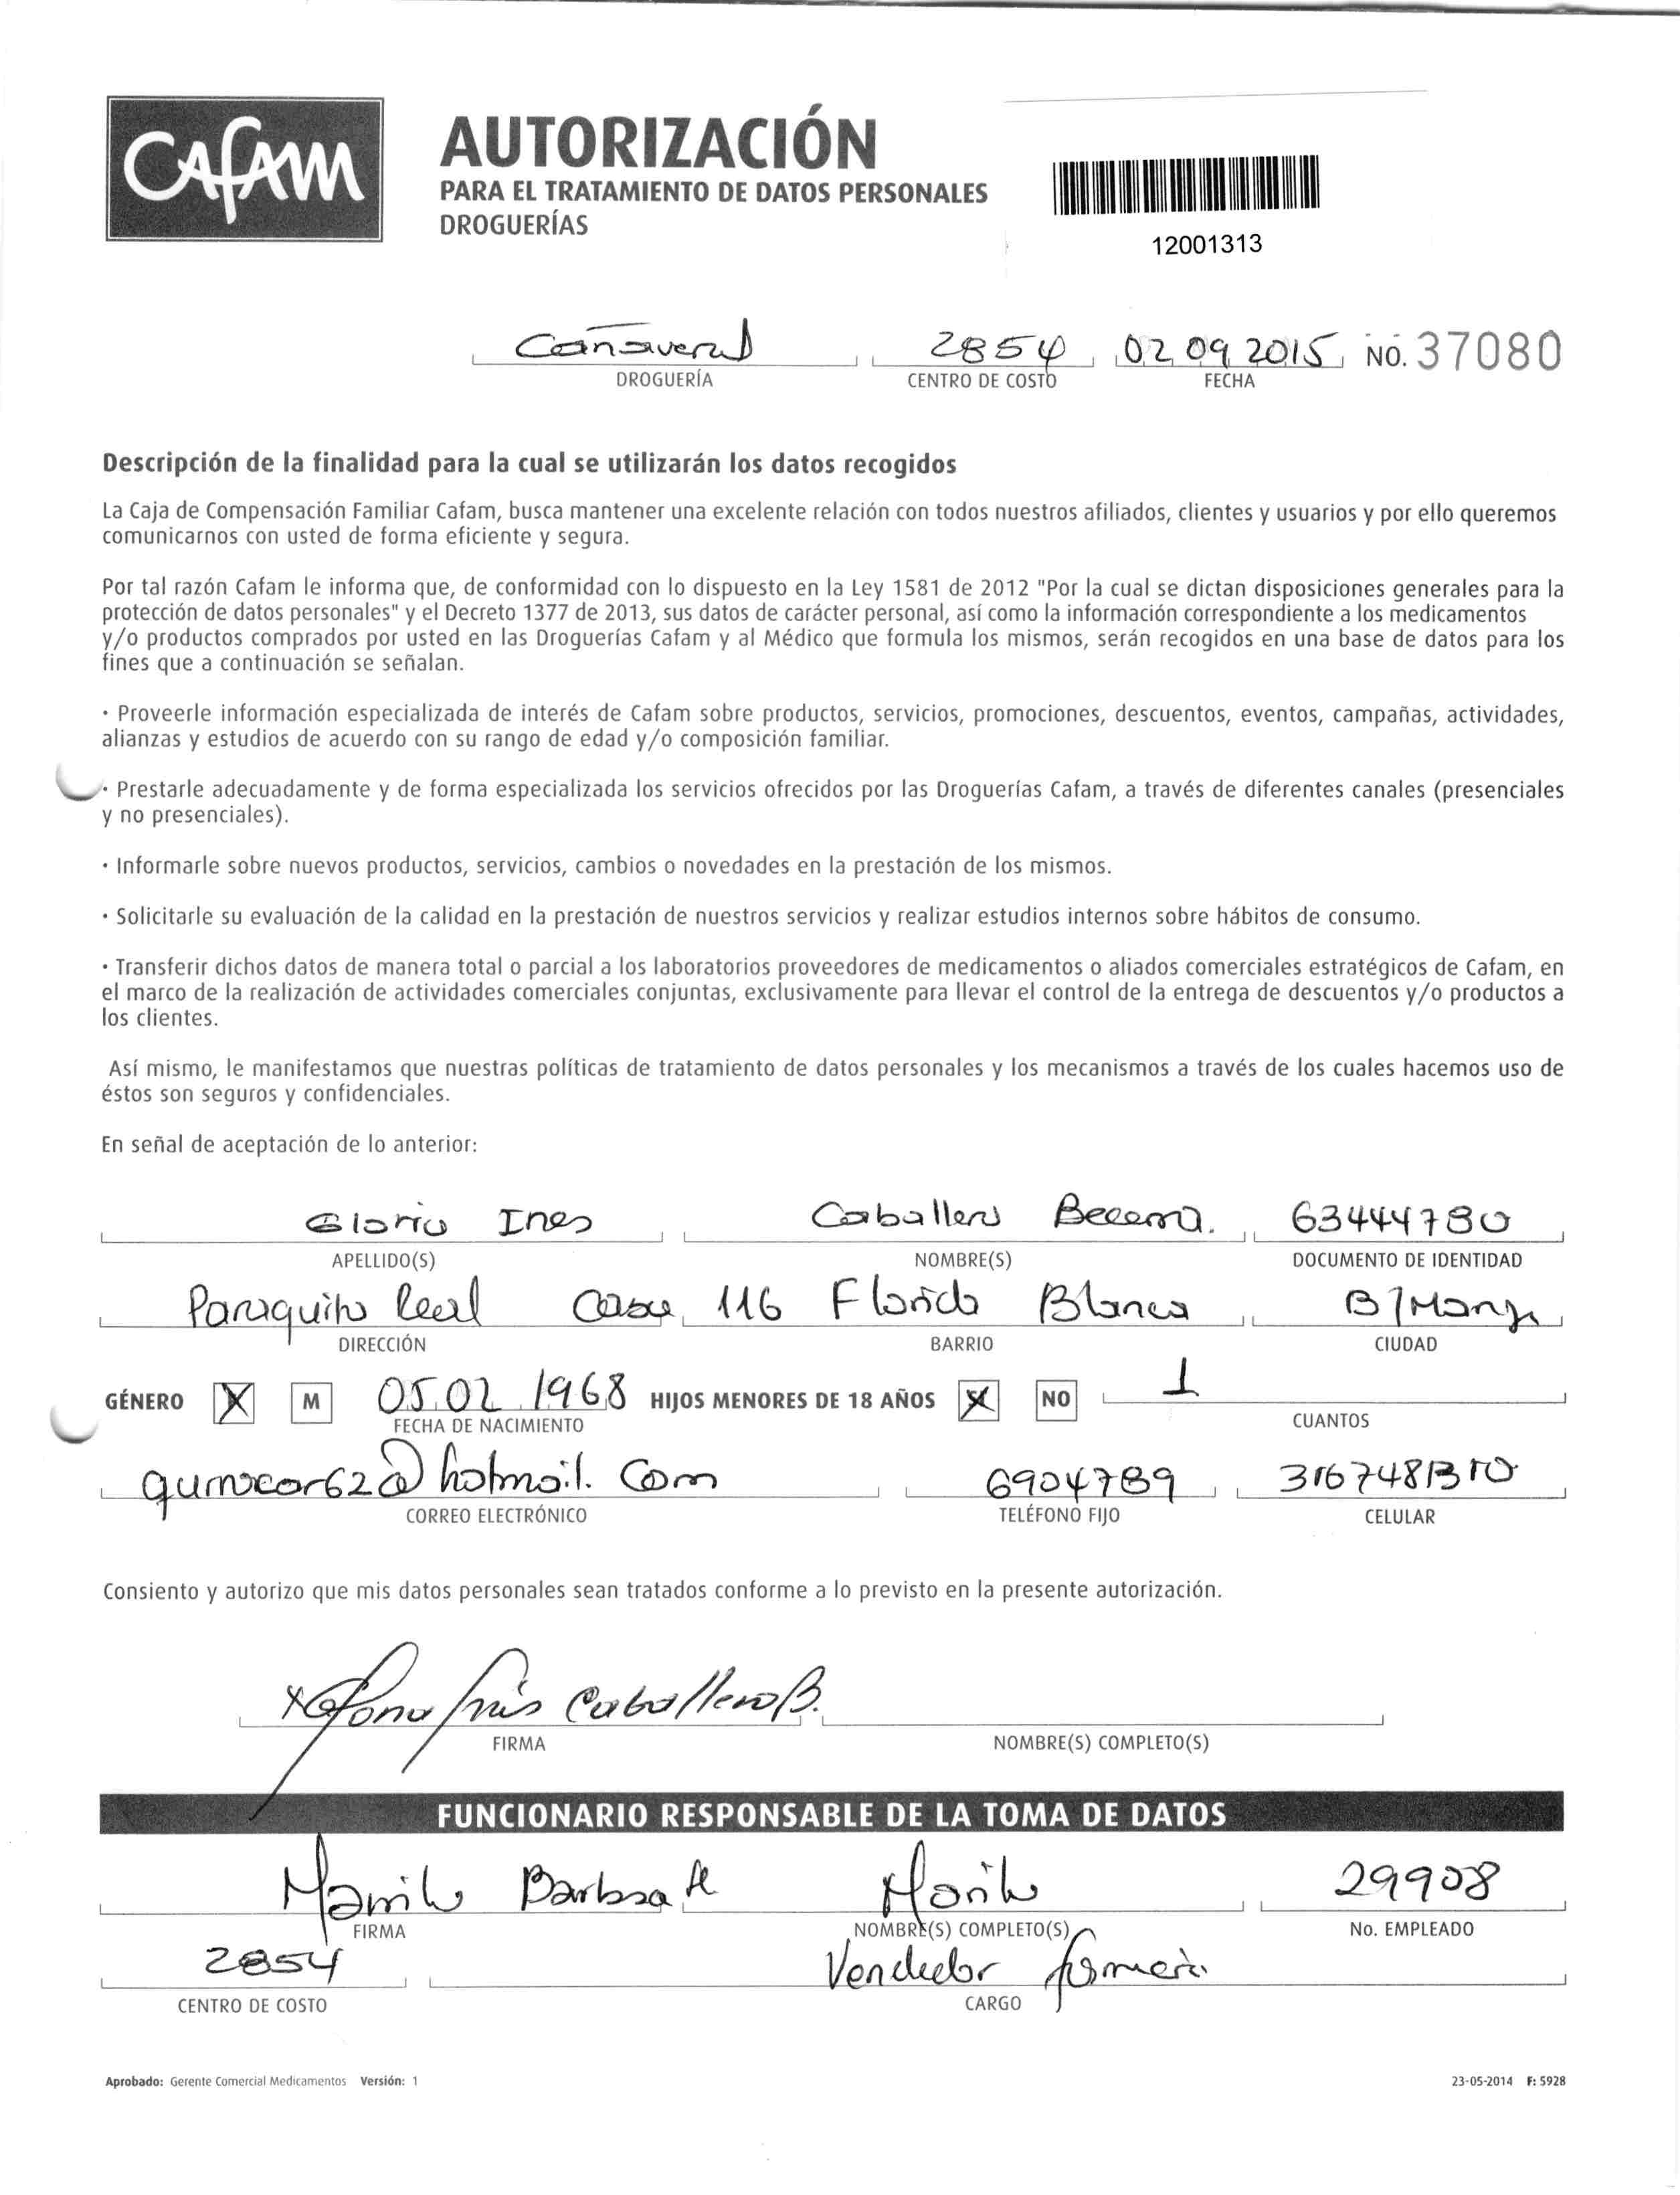 CAFAM
AUTORIZACIÓN
PARA EL TRATAMIENTO DE DATOS PERSONALES
DROGUERÍAS
12001313
Cañaveral 2854 02 09 2015 NO. 37080
DROGUERÍA CENTRO DE COSTO FECHA
Descripción de la finalidad para la cual se utilizarán los datos recogidos
La Caja de Compensación Familiar Cafam, busca mantener una excelente relación con todos nuestros afiliados, clientes y usuarios y por ello queremos
comunicarnos con usted de forma eficiente y segura.
Por tal razón Cafam le informa que, de conformidad con lo dispuesto en la Ley 1581 de 2012 "Por la cual se dictan disposiciones generales para la
protección de datos personales" y el Decreto 1377 de 2013, sus datos de carácter personal, así como la información correspondiente a los medicamentos
y/o productos comprados por usted en las Droguerías Cafam y al Médico que formula los mismos, serán recogidos en una base de datos para los
fines que a continuación se señalan.
· Proveerle información especializada de interés de Cafam sobre productos, servicios, promociones, descuentos, eventos, campañas, actividades,
alianzas y estudios de acuerdo con su rango de edad y/o composición familiar.
· Prestarle adecuadamente y de forma especializada los servicios ofrecidos por las Droguerías Cafam, a través de diferentes canales (presenciales
y no presenciales).
· Informarle sobre nuevos productos, servicios, cambios o novedades en la prestación de los mismos.
· Solicitarle su evaluación de la calidad en la prestación de nuestros servicios y realizar estudios internos sobre hábitos de consumo.
· Transferir dichos datos de manera total o parcial a los laboratorios proveedores de medicamentos o aliados comerciales estratégicos de Cafam, en
el marco de la realización de actividades comerciales conjuntas, exclusivamente para llevar el control de la entrega de descuentos y/o productos a
los clientes.
Así mismo, le manifestamos que nuestras políticas de tratamiento de datos personales y los mecanismos a través de los cuales hacemos uso de
éstos son seguros y confidenciales.
En señal de aceptación de lo anterior:
Gloria Ines Caballero Becerra. 63444780
APELLIDO(S) NOMBRE(S) DOCUMENTO DE IDENTIDAD
Paraguito Real Casa 116 Florida Blanca B/Manga
DIRECCIÓN BARRIO CIUDAD
GÉNERO X M 05.02.1968 HIJOS MENORES DE 18 AÑOS X NO 1
FECHA DE NACIMIENTO CUANTOS
@hotmail.com 6904789 3167481310
CORREO ELECTRÓNICO TELÉFONO FIJO CELULAR
Consiento y autorizo que mis datos personales sean tratados conforme a lo previsto en la presente autorización.
Caballero B.
FIRMA NOMBRE(S) COMPLETO(S)
FUNCIONARIO RESPONSABLE DE LA TOMA DE DATOS
29908
FIRMA NOMBRE(S) COMPLETO(S) No. EMPLEADO
2854 Vendedor
CENTRO DE COSTO CARGO
Aprobado: Gerente Comercial Medicamentos Versión: 1 23-05-2014 F: 5928